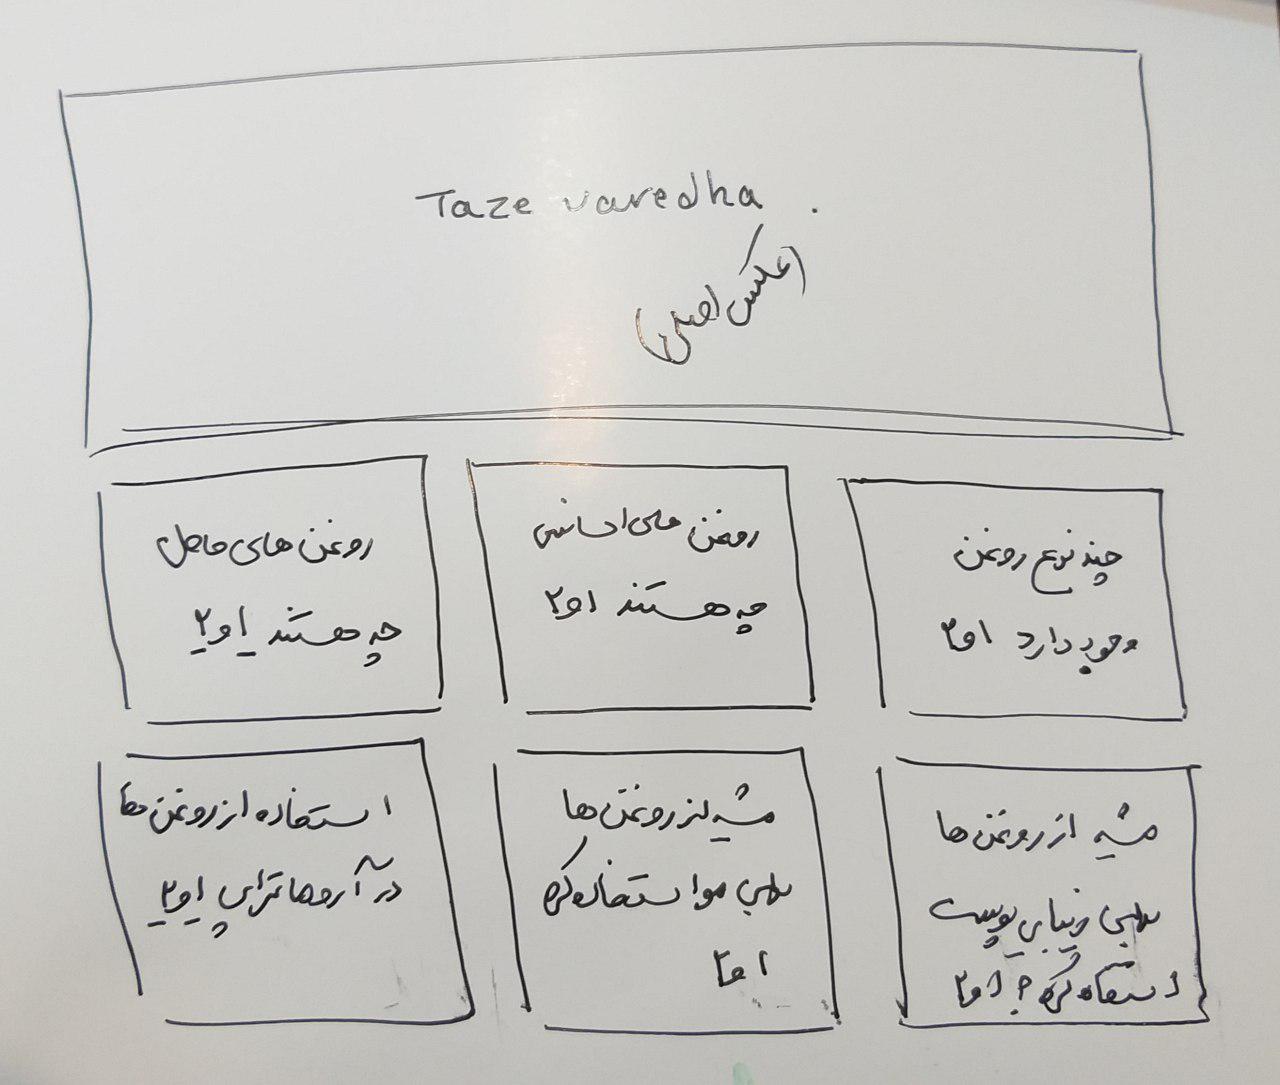 Taze varedha .
(عکس اصلی)
چند نوع روغن
وجود دارد ۱و۲
روغن های اسانسی
چه هستند ۱و۲
روغن های حامل
چه هستند ۱و۲
میشه از روغن ها
برای زیبایی پوست
استفاده کرد؟ ۱و۲
میشه از روغن ها
برای مو استفاده کرد
۱و۲
استفاده از روغن ها
در آروماتراپی ۱و۲